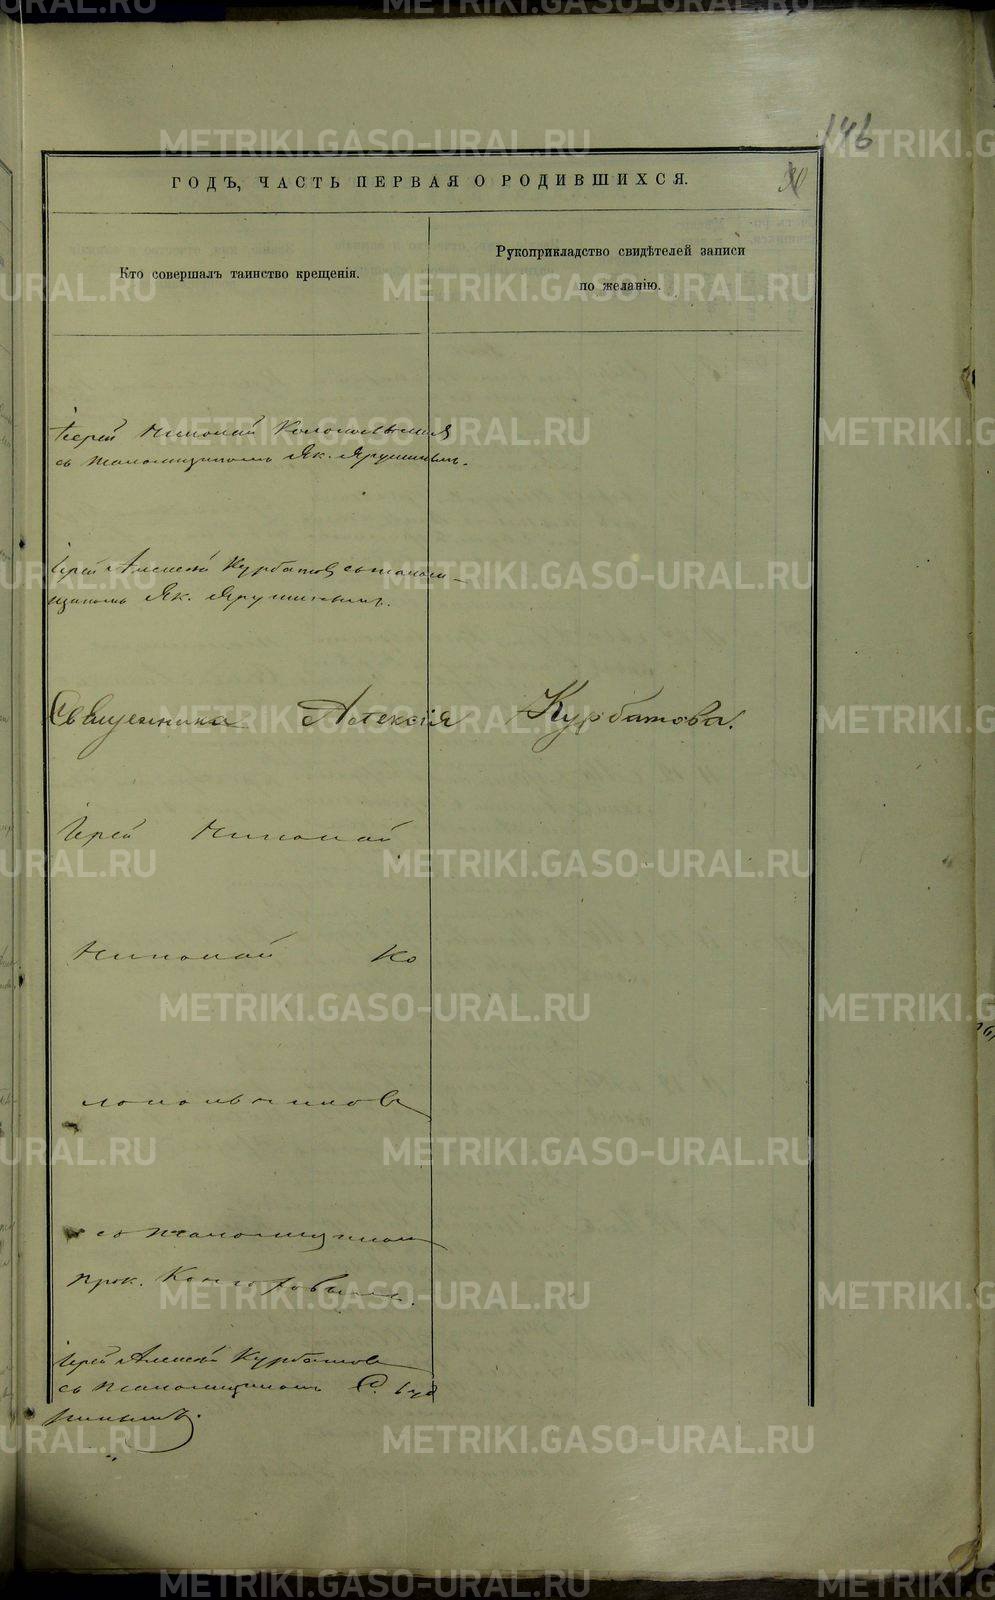 146
ГОДЪ, ЧАСТЬ ПЕРВАЯ О РОДИВШИХСЯ.
Кто совершалъ таинство крещенія.
Рукоприкладство свидѣтелей записи
по желанію.
Іерей Николай Колокольников
съ псаломщикомъ Як. Ярушинымъ.
Іерей Алексѣй Курбатов съ псалом-
щикомъ Як. Ярушинымъ.
Священника Алексія Курбатова.
Іерей Николай
Николай Ко
локольников
съ псаломщиком
прок.
Іерей Алексѣй Курбатов
съ псаломщикомъ С.
METRIKI.GASO-URAL.RU